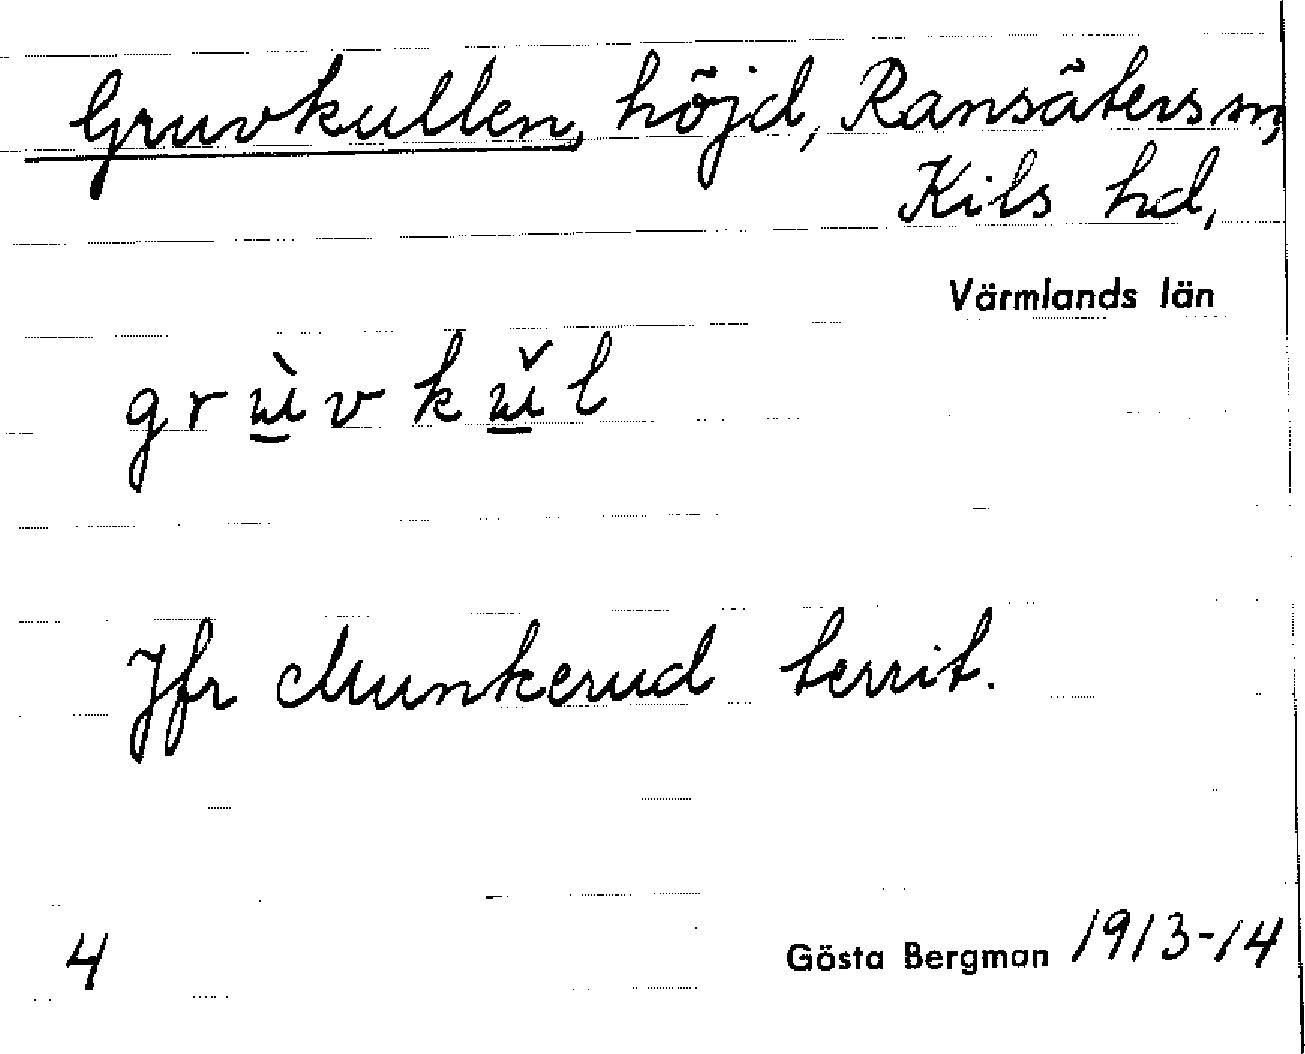 Gruvkullen, höjd, Ransäters sn,
Kils hd,
Värmlands län
Jfr Munkerud territ.
4 Gösta Bergman 1913-14